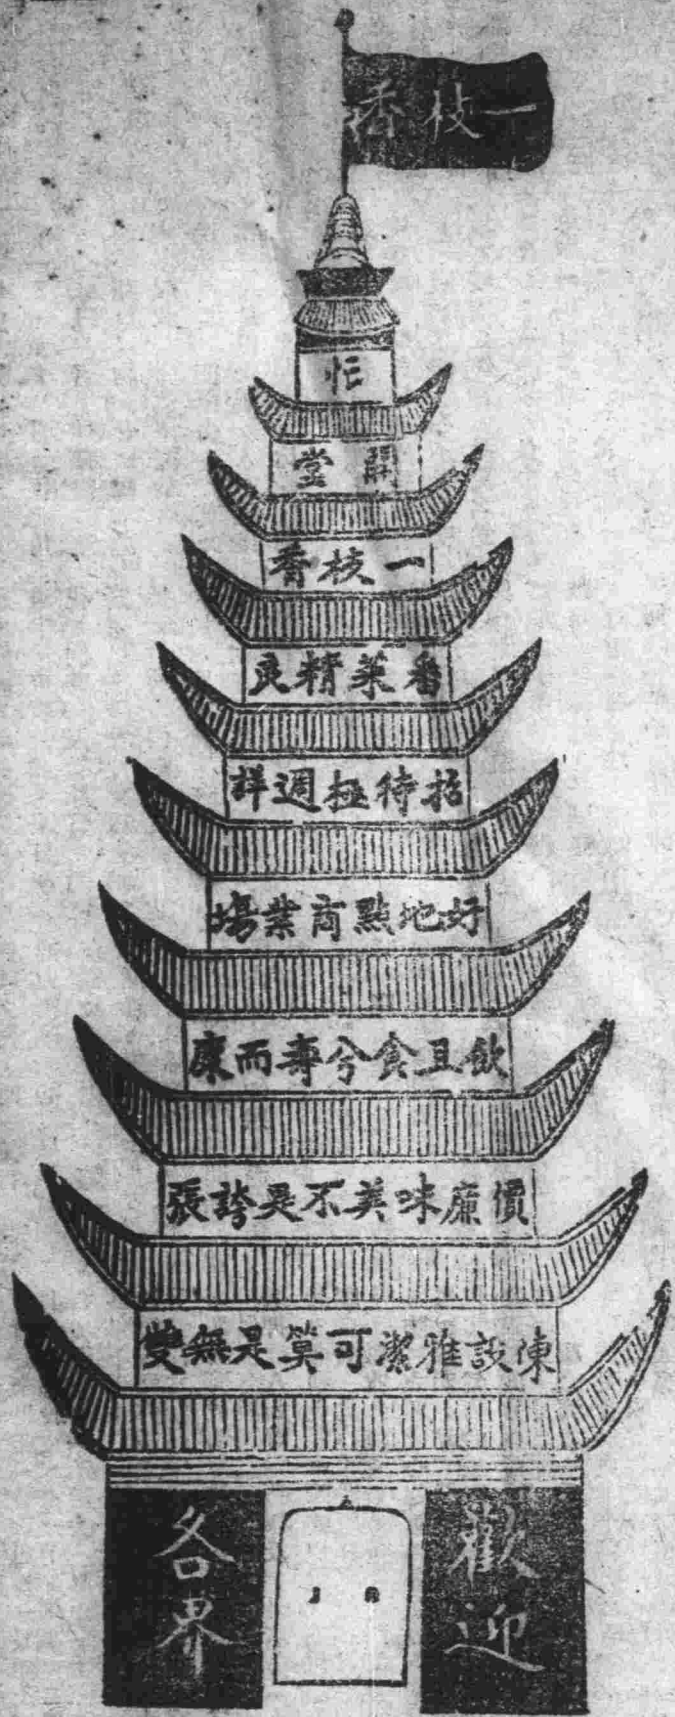 一枝香
忙
開堂
一枝香
番菜精良
招待極週詳
好地點商業場
飲且食兮壽而康
價廉味美不是誇張
陳設雅潔可算是無雙
歡迎
各界